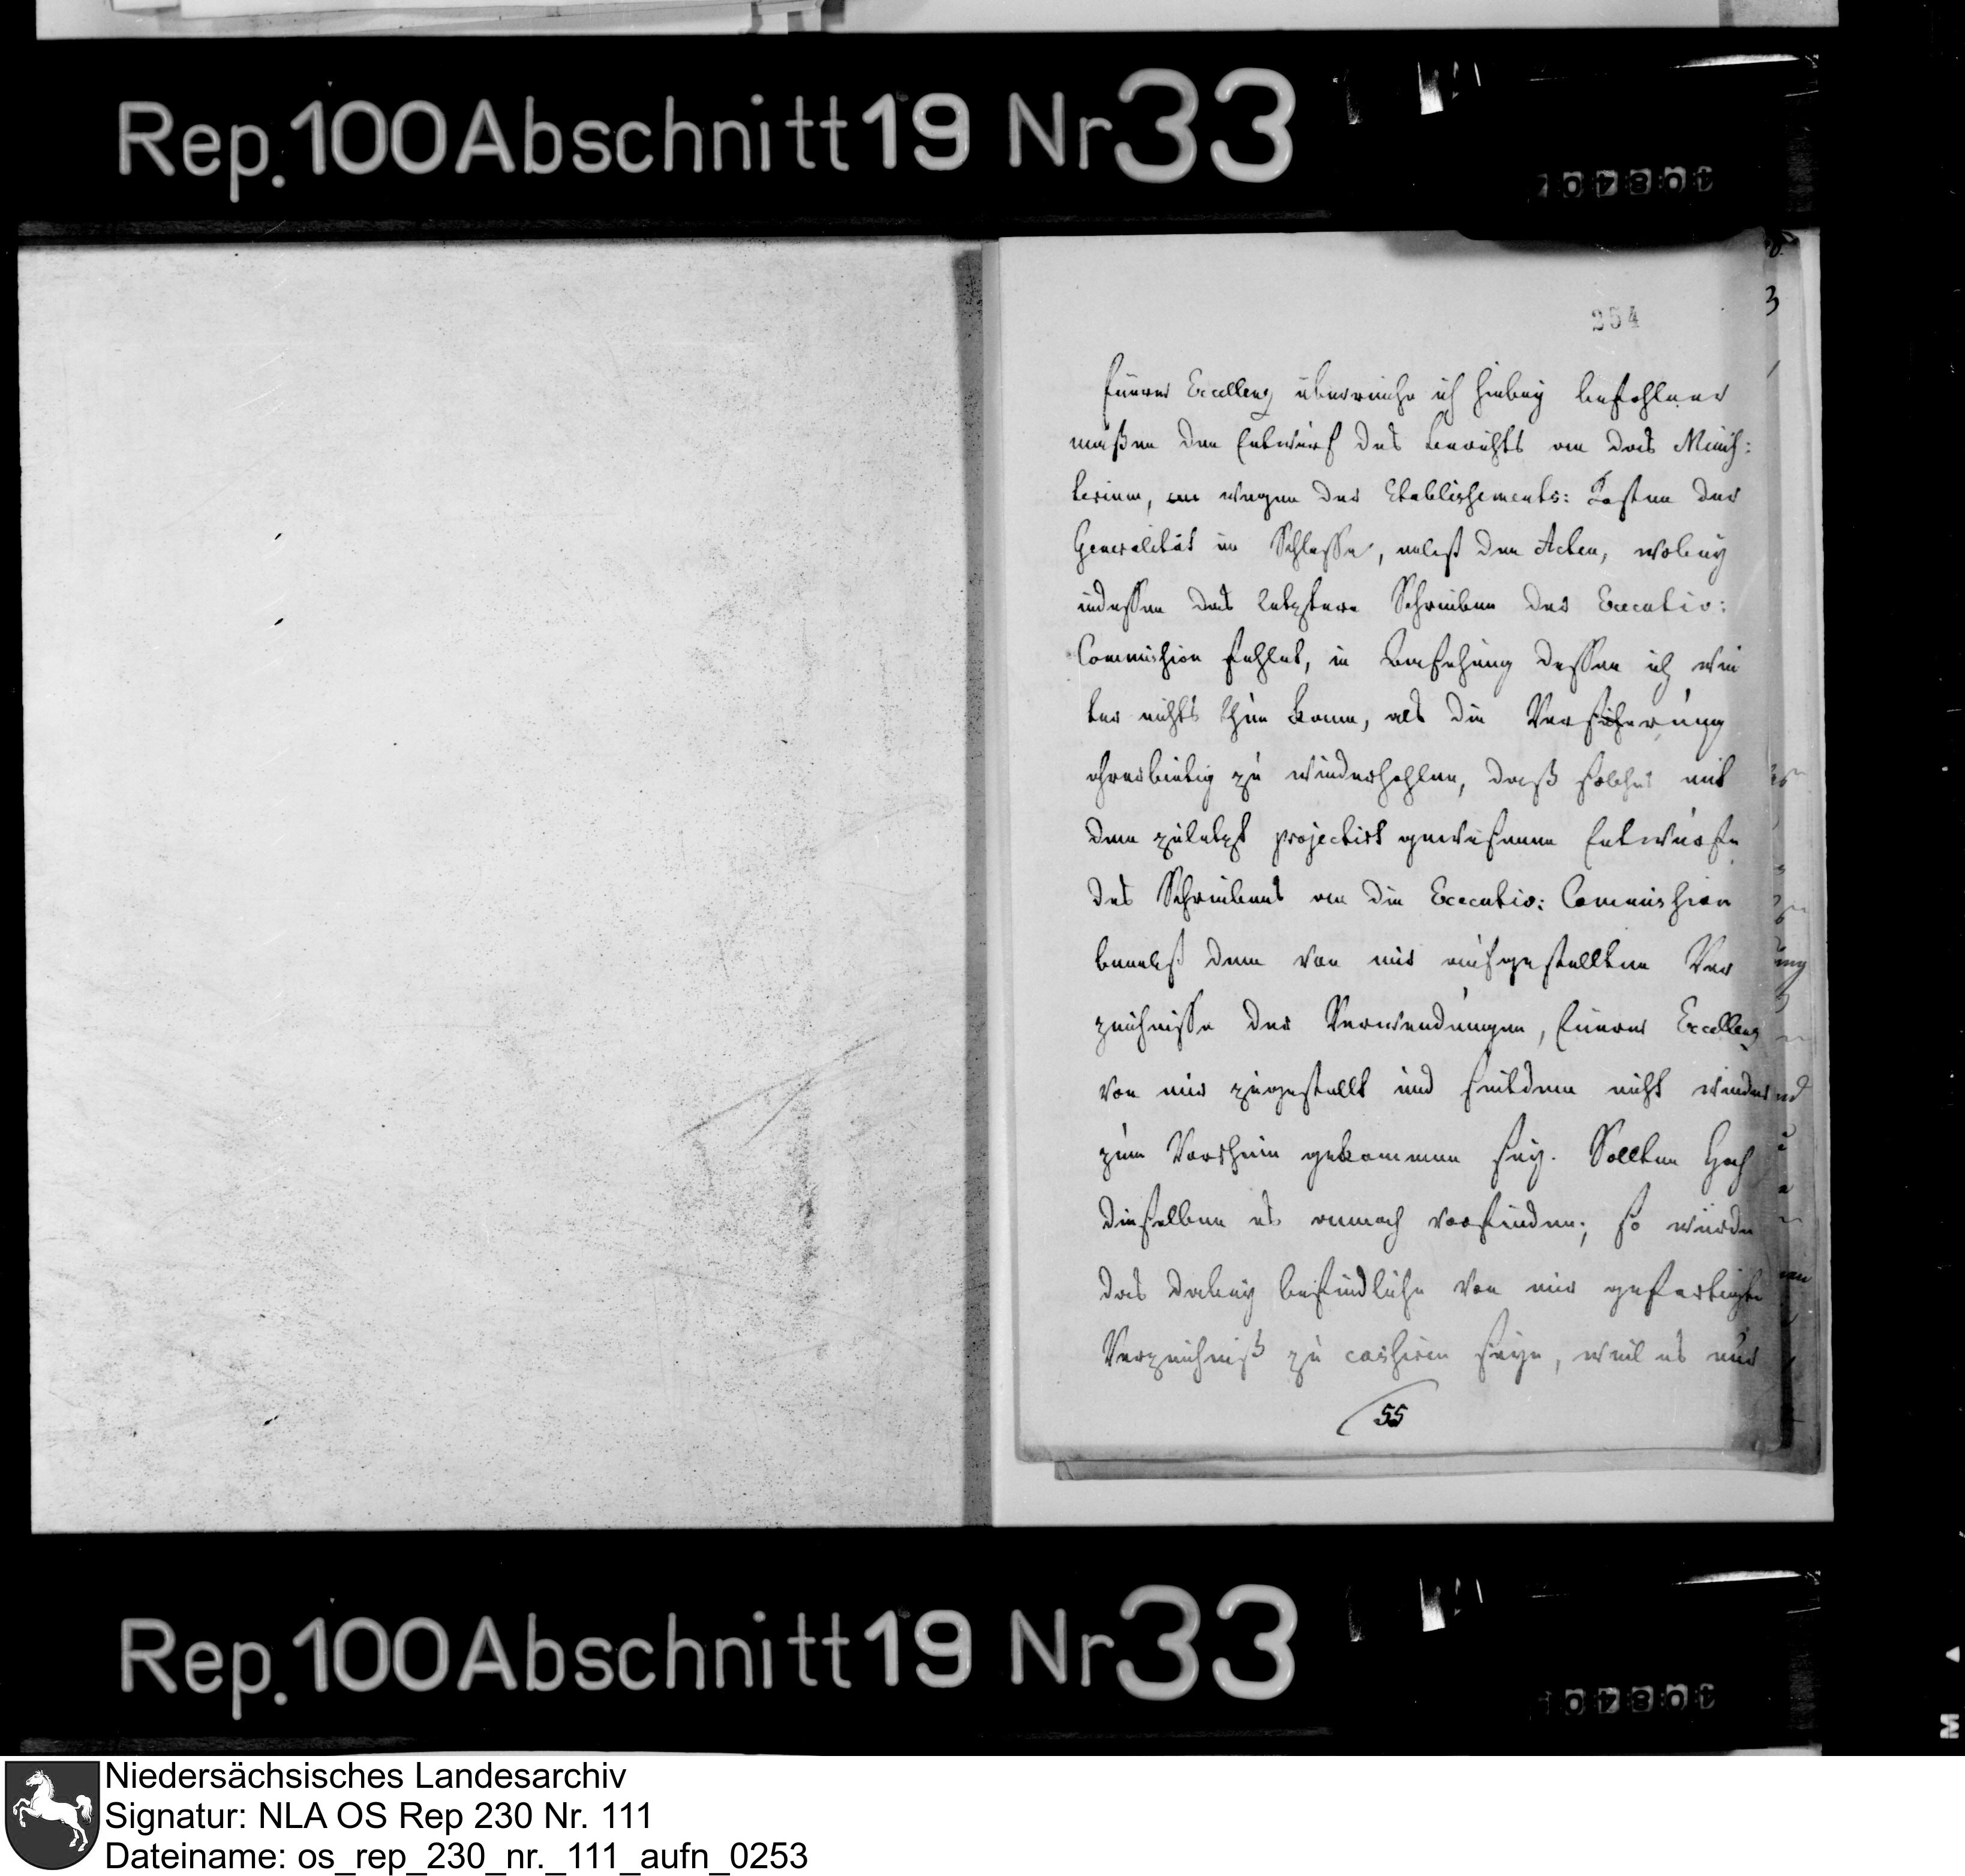 Rep. 100 Abschnitt 19 Nr 33
254
Euerer Excellenz überreiche ich hiebey befohlner
maßen den Entwurf des Berichts an das Minis:
terium, wegen der Etablissements: Kosten der
Generalität im Schlosse, nebst den Acten, wobey
indessen das letztere Schreiben der Executiv:
Commission fehlet, in Ansehung dessen ich wei
ter nichts thun kann, als die Versicherung
ehrerbietig zu wiederhohlen, daß solches mit
dem zuletzt projectirt gewesenen Entwurfe
des Schreibens an die Executiv: Commission
benebst dem von mir aufgestellten Ver
zeichnisse der Verwendungen, Euerer Excellenz
von mir zugestellt und seitdem nicht wieder
zum Vorschein gekommen sey. Sollten Hoch
dieselben es annoch vorfinden; so würde
das dabey befindliche von mir gefertigte
Verzeichniß zu cassiren seyn, weil es nur
55
Rep. 100 Abschnitt 19 Nr 33
Niedersächsisches Landesarchiv
Signatur: NLA OS Rep 230 Nr. 111
Dateiname: os_rep_230_nr._111_aufn_0253